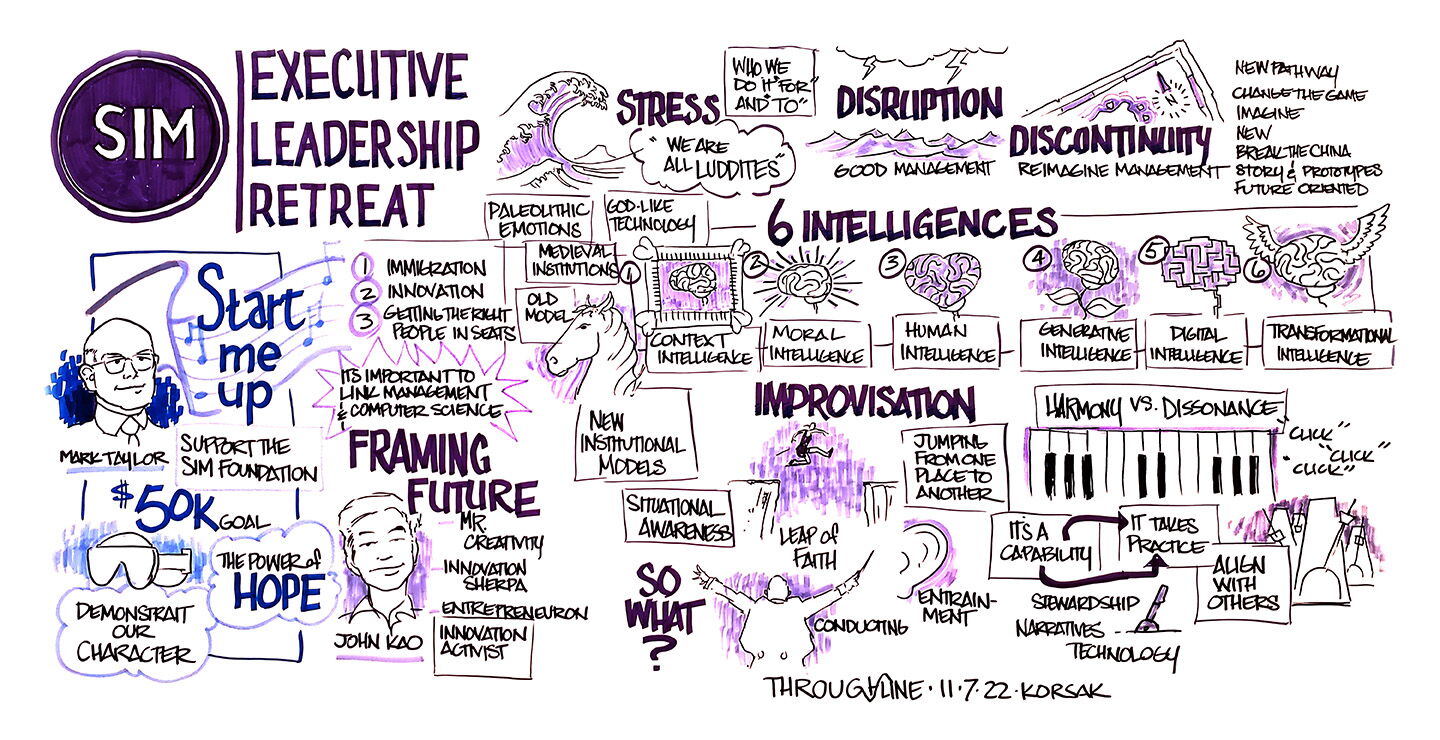 SIM
EXECUTIVE
LEADERSHIP
RETREAT
Start
me
up
MARK TAYLOR
SUPPORT THE
SIM FOUNDATION
$50K GOAL
THE POWER of
HOPE
DEMONSTRAIT
OUR
CHARACTER
1 IMMIGRATION
2 INNOVATION
3 GETTING THE RIGHT
PEOPLE IN SEATS
IT'S IMPORTANT TO
LINK MANAGEMENT
& COMPUTER SCIENCE
FRAMING
FUTURE
MR.
CREATIVITY
INNOVATION
SHERPA
ENTREPRENEURON
INNOVATION
ACTIVIST
JOHN KAO
STRESS
WHO WE
DO IT "FOR"
AND "TO"
"WE ARE
ALL LUDDITES"
PALEOLITHIC
EMOTIONS
GOD-LIKE
TECHNOLOGY
MEDIEVAL
INSTITUTIONS
OLD
MODEL
NEW
INSTITUTIONAL
MODELS
DISRUPTION
GOOD MANAGEMENT
N
DISCONTINUITY
REIMAGINE MANAGEMENT
NEW PATHWAY
CHANGE THE GAME
IMAGINE
NEW
BREAK THE CHINA
STORY & PROTOTYPES
FUTURE ORIENTED
6 INTELLIGENCES
1
CONTEXT
INTELLIGENCE
2
MORAL
INTELLIGENCE
3
HUMAN
INTELLIGENCE
4
GENERATIVE
INTELLIGENCE
5
DIGITAL
INTELLIGENCE
6
TRANSFORMATIONAL
INTELLIGENCE
IMPROVISATION
JUMPING
FROM ONE
PLACE TO
ANOTHER
SITUATIONAL
AWARENESS
LEAP OF
FAITH
SO
WHAT
?
CONDUCTING
ENTRAIN-
MENT
HARMONY VS. DISSONANCE
"CLICK"
"CLICK"
"CLICK"
IT'S A
CAPABILITY
IT TAKES
PRACTICE
ALIGN
WITH
OTHERS
STEWARDSHIP
NARRATIVES
TECHNOLOGY
THROUGHLINE · 11·7·22 · KORSAK